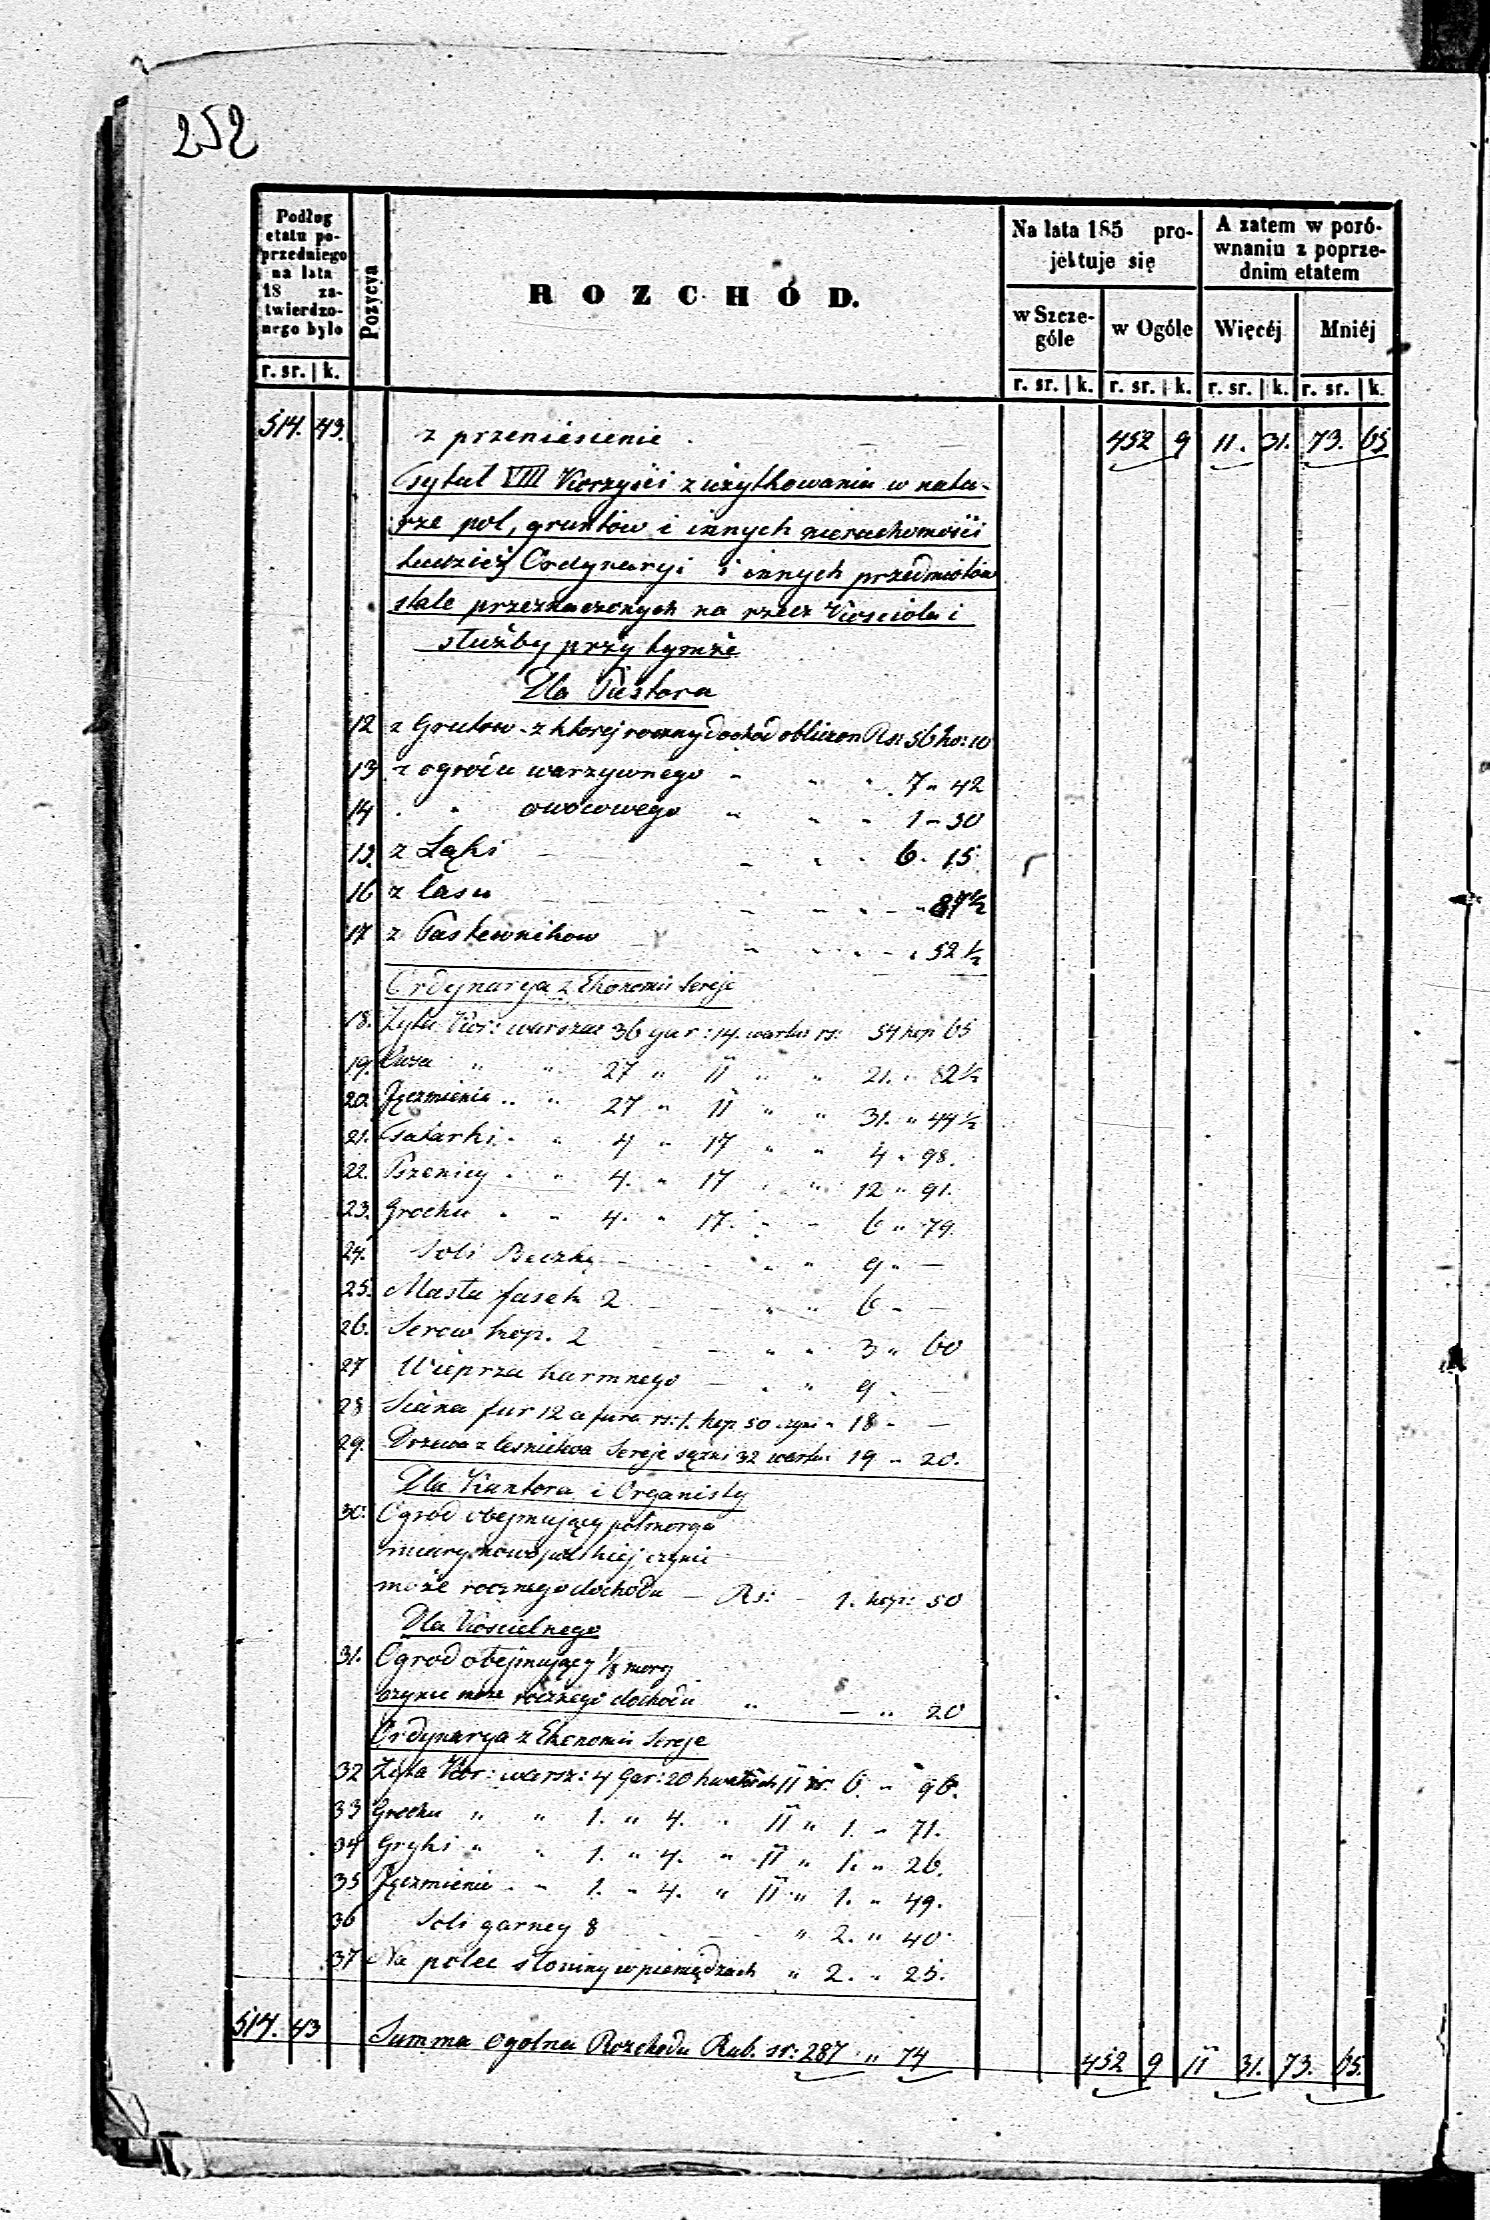 252
Podług etatu poprzedniego na lata 18 zatwierdzonego było
Pozycya
ROZCHÓD.
Na lata 185 projektuje się
A zatem w porównaniu z poprzednim etatem
w Szczególe
w Ogóle
Więcéj
Mniéj
r. sr. k. r. sr. k. r. sr. k. r. sr. k. r. sr. k.
514. 43. z przeniesienie 452 9 11. 31. 73. 65
Tytuł VIII Korzyści z użytkowania w natu-
rze pol, gruntów i innych nieruchomości
tudzież Ordynaryi i innych przedmiotów
stale przeznaczonych na rzecz Kościoła i
służby przy tymże
Dla Pastora
12 z Grutow - z ktorej roczny dochod obliczon Rsr 56 ko: 10
13 z ogrodu warzywnego " " " 7 " 42
14 " " owocowego " " " 1 - 30
15. z Łąki " " " 6 . 15
16 z lasu " " " - " 87½
17 z Pastewnikow " " " - " 52½
Ordynarya z Ekonomii Sereje
18. Żyta Kor: warszaw 36 gar: 14. wartu rs: 54 kop 65
19. Owsa " " 27 " 11 " " 21. " 82½
20. Jęczmienia " " 27 " 11 " " 31. " 44½
21. Tatarki " " 4 " 17 " " 4 " 98.
22. Pszenicy " " 4. " 17 " " 12 " 91.
23. Grochu " " 4. " 17. " " 6 " 79.
24. Soli Beczkę " " 9 " —
25. Masła fasek 2 " " 6 " —
26. Serow kop. 2 " " 3 " 60
27 Wieprza karmnego " " 9 " —
28 Siana fur 12 a fura rs: 1. kop 50 czyni " 18 " —
29. Drzewa z lesnictwa Sereje sążni 32 wartu: 19 " 20.
Dla Kantora i Organisty
30. Ogrod obejmujący pół morga
miary nowopolskiej czynić
może rocznego dochodu — Rs: - 1. kop: 50
Dla Kościelnego
31. Ogrod obejmujący ⅛ morg
czynić może rocznego dochodu " — " 20
Ordynarya z Ekonomii Sereje
32 Żyta Kor: warsz: 4 Gar: 20 11 rs: 6. " 96.
33 Grochu " " 1. " 4. " 11 " 1. " 71.
34 Gryki " " 1. " 4. " 11 " 1. " 26.
35 Jęczmienia " " 1. " 4. " 11 " 1. " 49.
36 Soli garncy 8 " 2. " 40
37 Na połeć słoniny w pieniędzach " 2. " 25.
514. 43 Summa ogolna Rozchodu Rub. sr: 287 " 74 452 9 11 31. 73. 65.